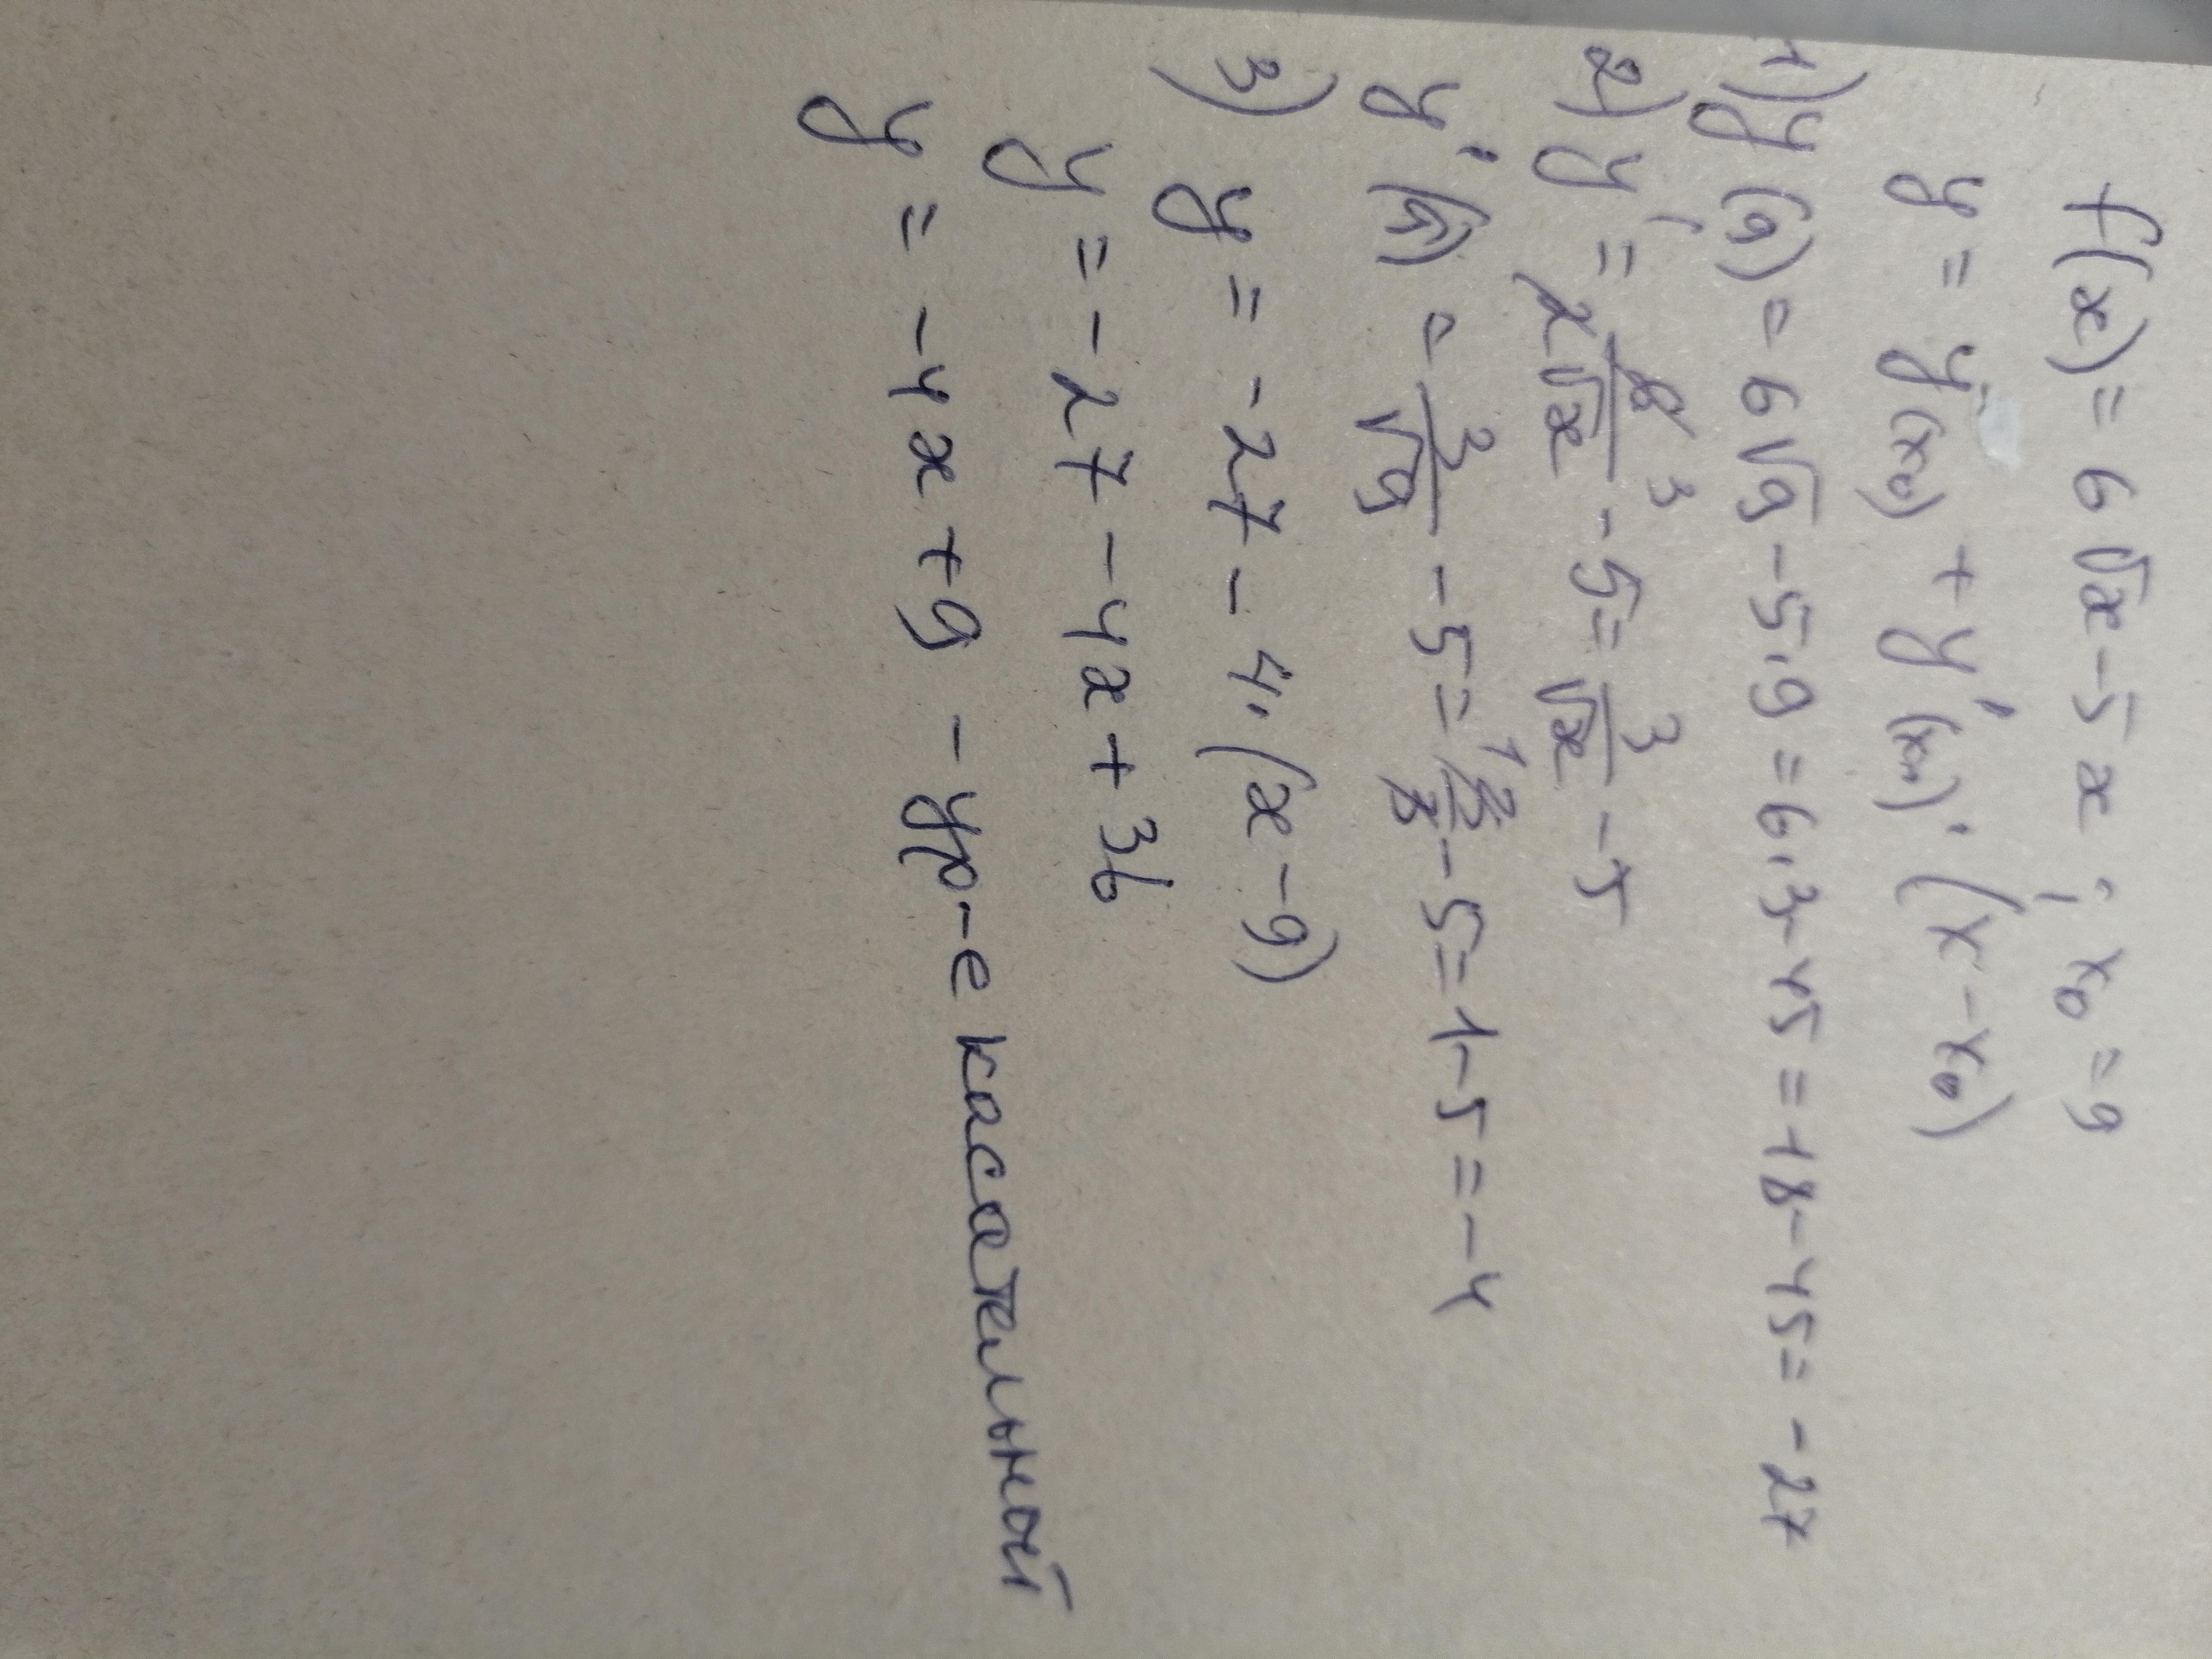 f(x) = 6√x - 5x ; x₀ = 9
y = y(x₀) + y'(x₀) · (x - x₀)
1) y(9) = 6√9 - 5·9 = 6·3 - 45 = 18 - 45 = -27
2) y' = 6 3/2√x - 5 = 3/√x - 5
y'(9) = 3/√9 - 5 = 1 3/3 - 5 = 1 - 5 = -4
3) y = -27 - 4·(x - 9)
y = -27 - 4x + 36
y = -4x + 9 - ур-е касательной